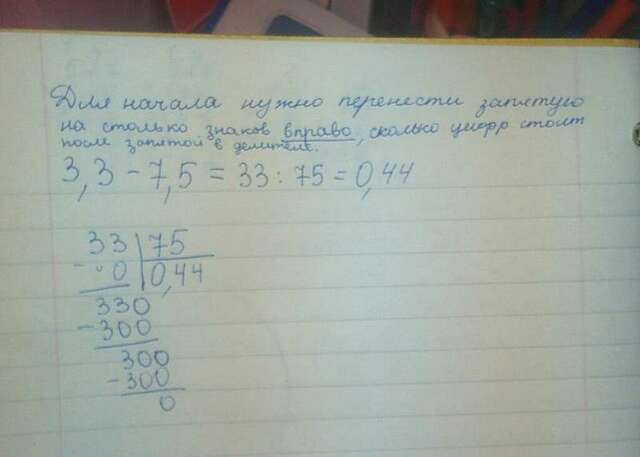 Для начала нужно перенести запятую
на столько знаков вправо, сколько цифр стоит
после запятой в делителе.
3,3 - 7,5 = 33 : 75 = 0,44
33 | 75
- 0 | 0,44
330
- 300
300
- 300
0